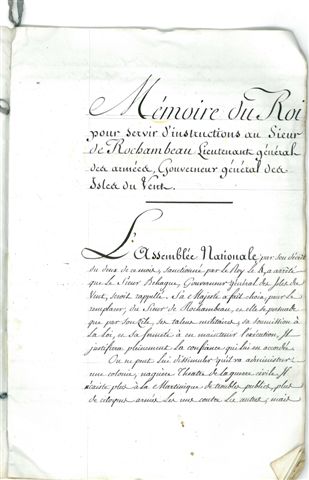 Mémoire du Roi
pour servir d'instructions au Sieur
de Rochambeau Lieutenant général
des armées, Gouverneur général des
Isles du Vent.
L'Assemblée Nationale, par son décret
du deux de ce mois, sanctionné par le Roy le 8, a arrêté
que le Sieur Behague, Gouverneur général des Isles du
Vent, seroit rappellé. Sa Majesté a fait choix, pour le
remplacer, du Sieur de Rochambeau, et elle se persuade
que par son zèle, ses talens militaires, sa soumission à
la Loi, et sa fermeté à en maintenir l'exécution, Il
justifiera pleinement la confiance qui lui est accordée.
On ne peut lui dissimuler qu'il va administrer
une colonie, naguère Théatre de la guerre civile. Il
n'existe plus à la Martinique de troubles publics, plus
de citoyens armés les uns contre les autres; mais